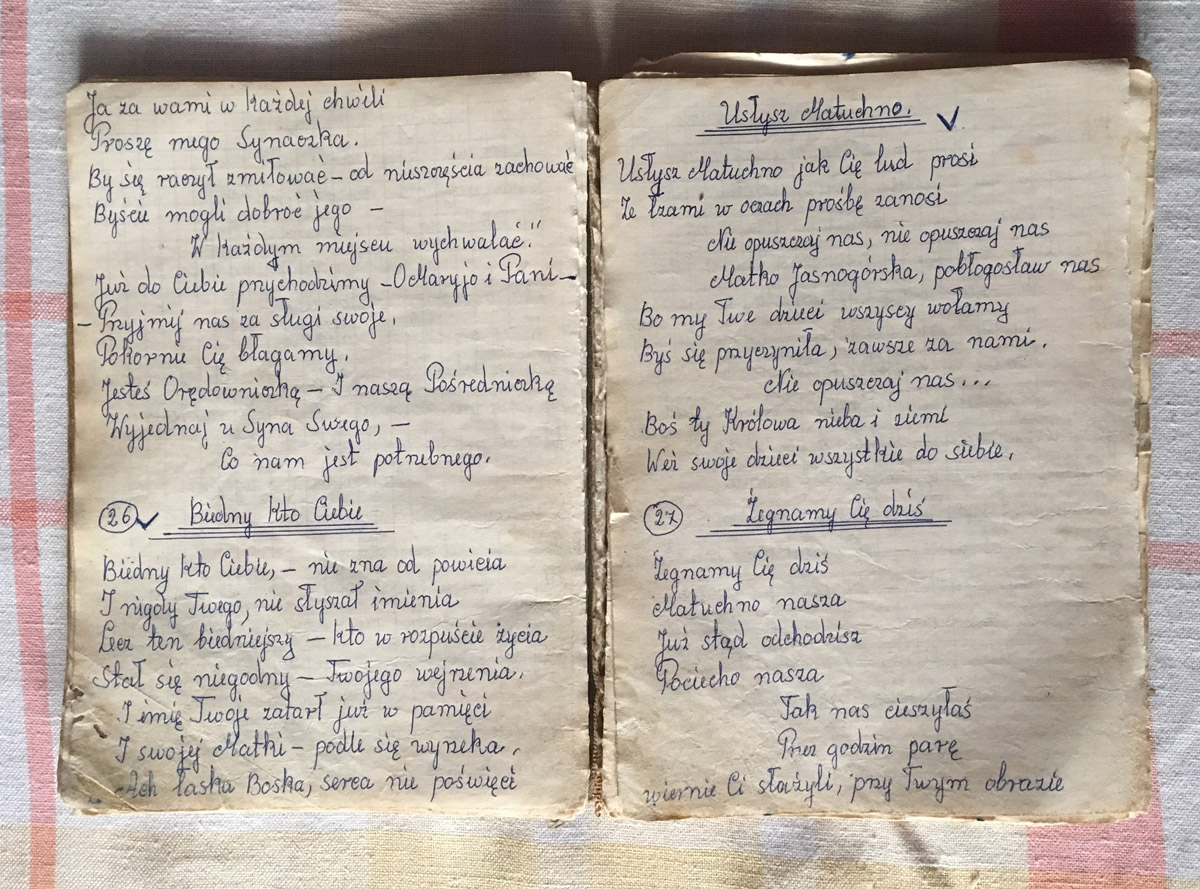 Ja za wami w każdej chwili
Proszę mego Synaczka.
By się raczył zmiłować – od nieszczęścia zachować
Byście mogli dobroć jego –
W każdym miejscu wychwalać."
Już do Ciebie przychodzimy – O Maryjo i Pani –
– Przyjmij nas za sługi swoje,
Pokornie Cię błagamy,
Jesteś Orędowniczką – I naszą Pośredniczką
Wyjednaj u Syna Swego, –
Co nam jest potrzebnego.
26 Biedny kto Ciebie
Biedny kto Ciebie, – nie zna od powicia
I nigdy Twego, nie słyszał imienia
Lecz ten biedniejszy – kto w rozpuście życia
Stał się niegodny – Twojego wejrzenia.
I imię Twoje zatarł już w pamięci
I swojej Matki – podle się wyrzeka,
Ach łaska Boska, serca nie poświęci
Usłysz Matuchno.
Usłysz Matuchno jak Cię lud prosi
Ze łzami w oczach prośbę zanosi
Nie opuszczaj nas, nie opuszczaj nas
Matko Jasnogórska, pobłogosław nas
Bo my Twe dzieci wszyscy wołamy
Byś się przyczyniła, zawsze za nami.
Nie opuszczaj nas...
Boś ty Królowa nieba i ziemi
Weź swoje dzieci wszystkie do siebie.
27 Żegnamy Cię dziś
Żegnamy Cię dziś
Matuchno nasza
Już stąd odchodzisz
Pociecho nasza
Tak nas cieszyłaś
Przez godzin parę
wiernie Ci służyli, przy Twym obrazie